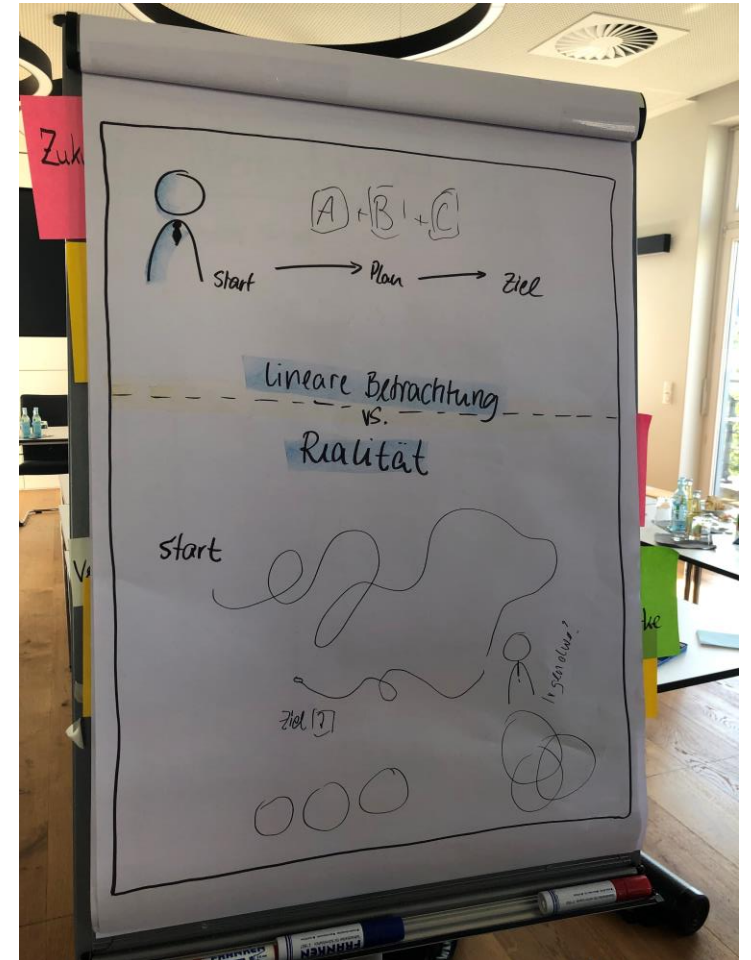 Zuk
A + B + C
Start → Plan → Ziel
Lineare Betrachtung
vs.
Realität
Start
Ziel [?]
FRANKEN
FRANKEN